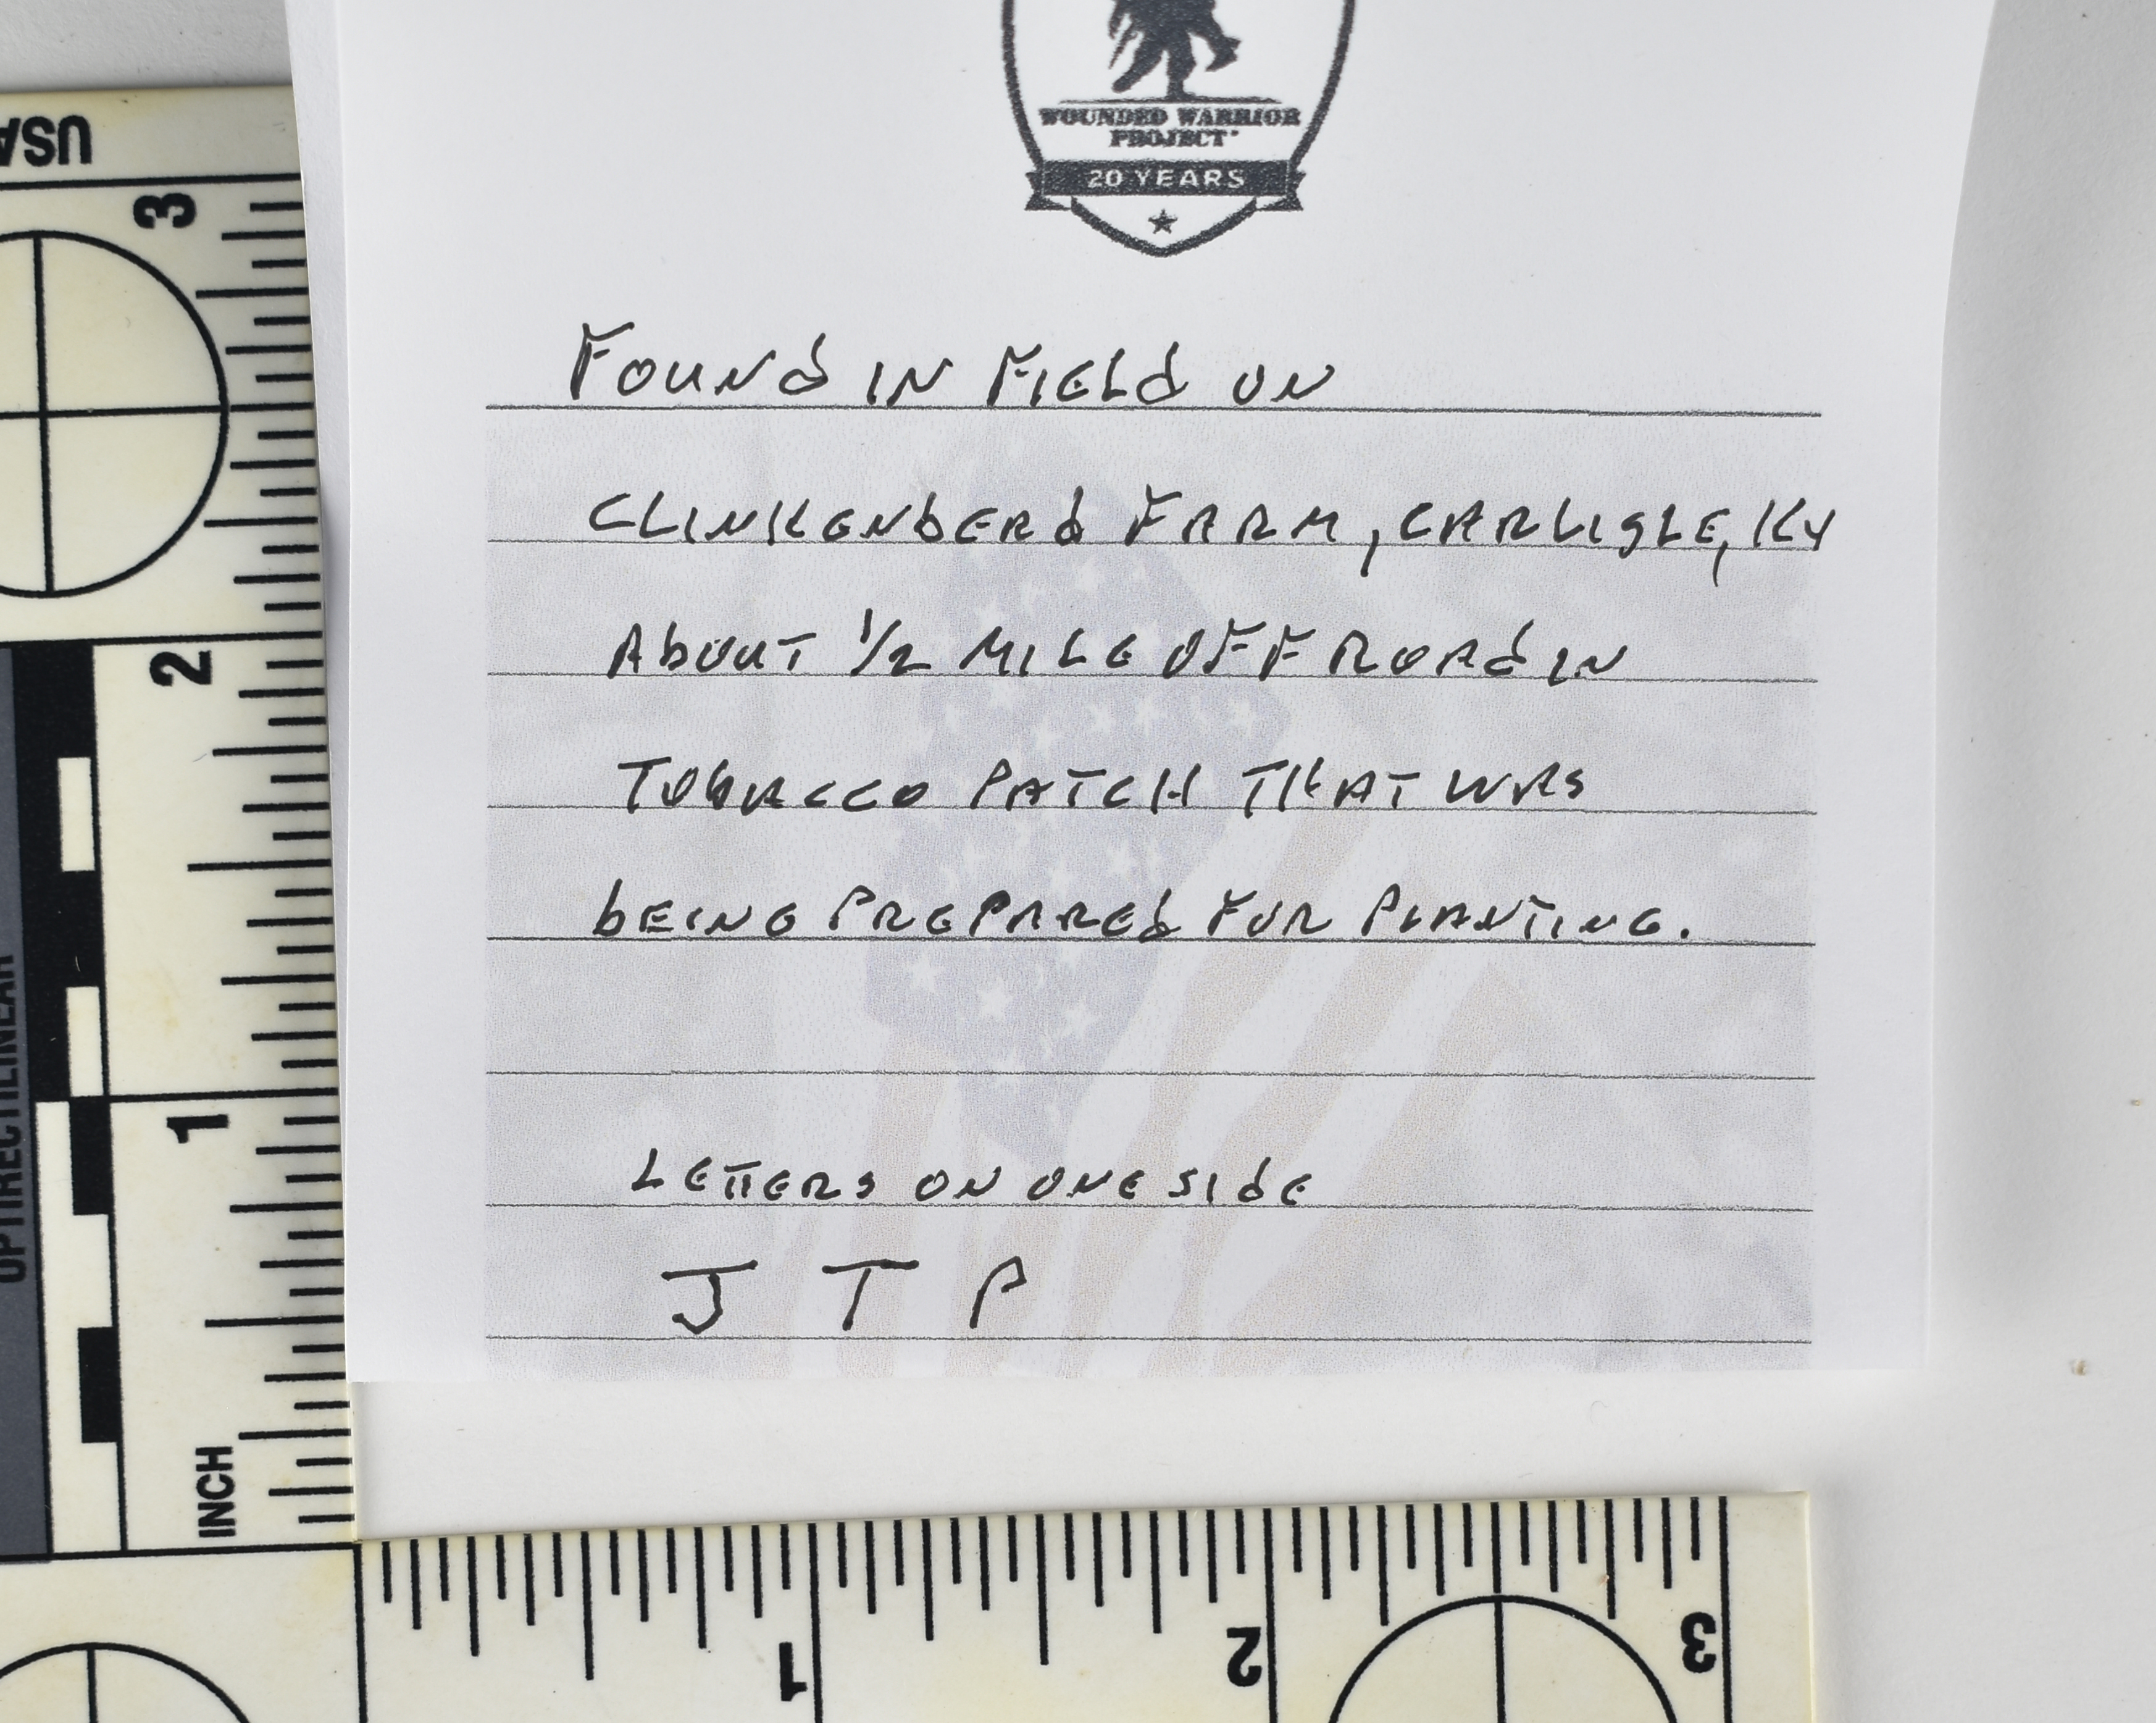 WOUNDED WARRIOR
PROJECT
20 YEARS
FOUNd IN FIELd ON
CLINKENbEARd FARM, CARLISLE, KY
AbOUT 1/2 MILE OFF ROAd IN
TObACCO PATCH THAT WAS
bEING PREPAREd FOR PLANTING.
LETTERS ON ONE SIdE
J T P
USA
3
2
1
INCH
OPTIRECTILINEAR
1
2
3